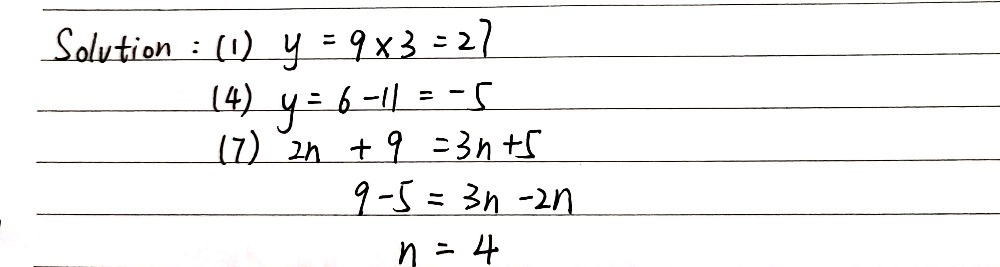 Solution : (1) y = 9 × 3 = 27
(4) y = 6 - 11 = - 5
(7) 2n + 9 = 3n + 5
9 - 5 = 3n - 2n
n = 4